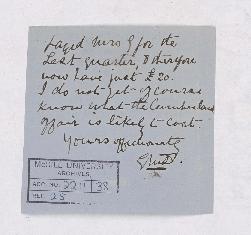 paid Mrs G for the
last quarter, & then you
now have just £20.
I do not yet of course
know what the Cumberland
affair is likely to cost.
Yours affectionately
McGILL UNIVERSITY
ARCHIVES
ACC. NO. 2211/38
REF. 25